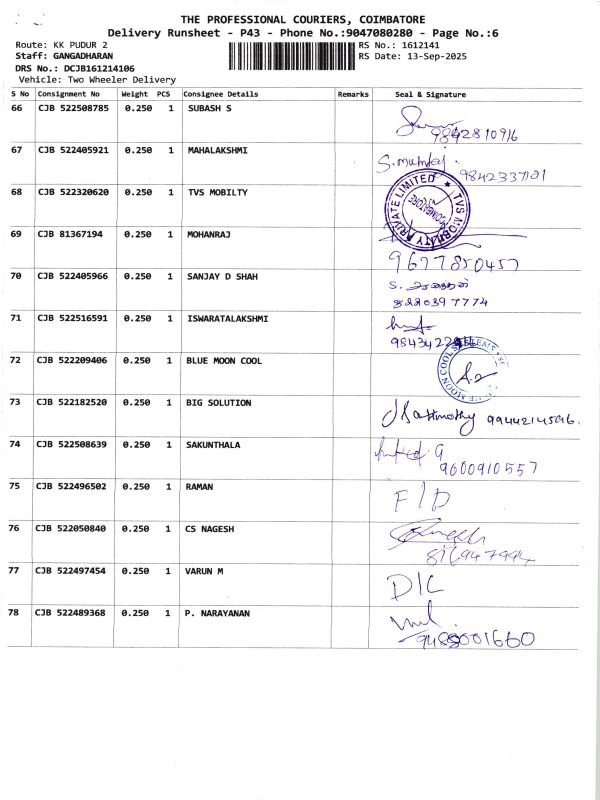 THE PROFESSIONAL COURIERS, COIMBATORE
Delivery Runsheet - P43 - Phone No.:9047080280 - Page No.:6
Route: KK PUDUR 2
RS No.: 1612141
Staff: GANGADHARAN
RS Date: 13-Sep-2025
DRS No.: DCJB161214106
Vehicle: Two Wheeler Delivery
S No Consignment No Weight PCS Consignee Details Remarks Seal & Signature
66 CJB 522508785 0.250 1 SUBASH S
9842810916
67 CJB 522405921 0.250 1 MAHALAKSHMI
68 CJB 522320620 0.250 1 TVS MOBILTY
TVS MOBILITY PRIVATE LIMITED
COIMBATORE
69 CJB 81367194 0.250 1 MOHANRAJ
9677850457
70 CJB 522405966 0.250 1 SANJAY D SHAH
71 CJB 522516591 0.250 1 ISWARATALAKSHMI
72 CJB 522209406 0.250 1 BLUE MOON COOL
MOON COOL
73 CJB 522182520 0.250 1 BIG SOLUTION
74 CJB 522508639 0.250 1 SAKUNTHALA
9600910557
75 CJB 522496502 0.250 1 RAMAN
F/D
76 CJB 522050840 0.250 1 CS NAGESH
77 CJB 522497454 0.250 1 VARUN M
D/L
78 CJB 522489368 0.250 1 P. NARAYANAN